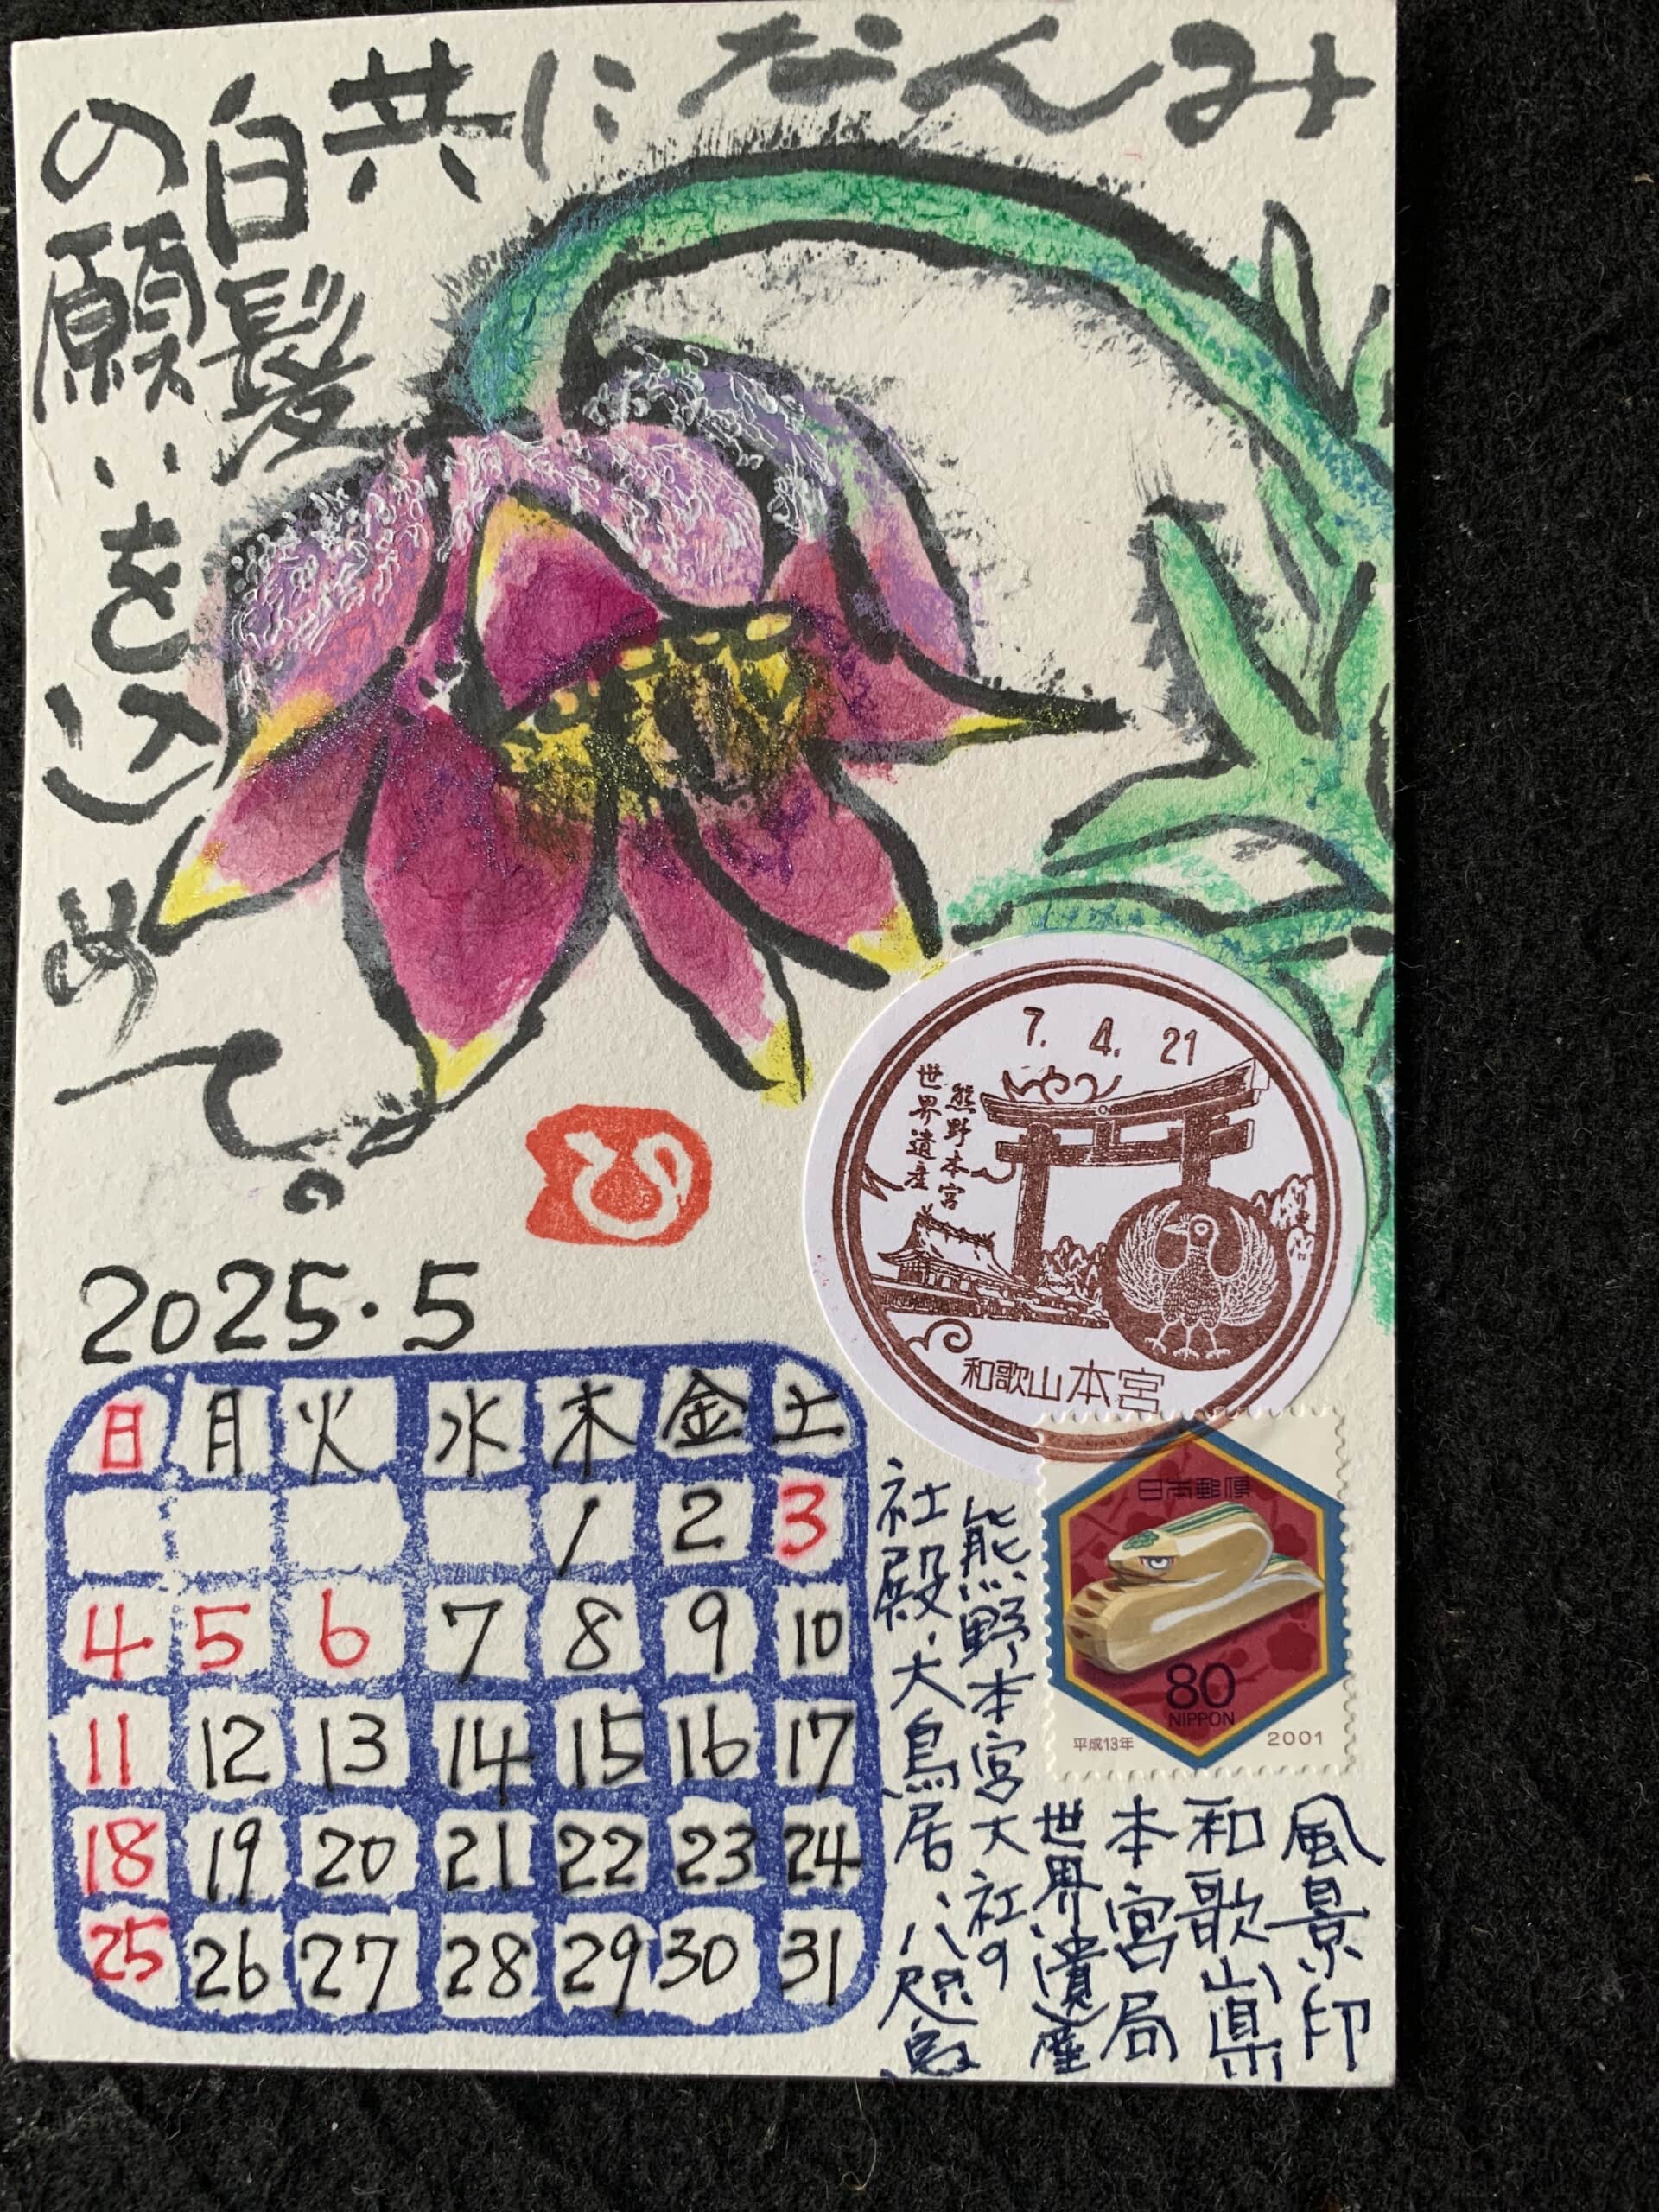 みんなに
共
白髪
の願いを込めて。
7. 4. 21
世界遺産
熊野本宮
和歌山本宮
2025・5
日 月 火 水 木 金 土
1 2 3
4 5 6 7 8 9 10
11 12 13 14 15 16 17
18 19 20 21 22 23 24
25 26 27 28 29 30 31
日本郵便
80
NIPPON
平成13年 2001
風景印
和歌山県
本宮局
世界遺産
熊野本宮大社の
社殿、大鳥居、八咫烏